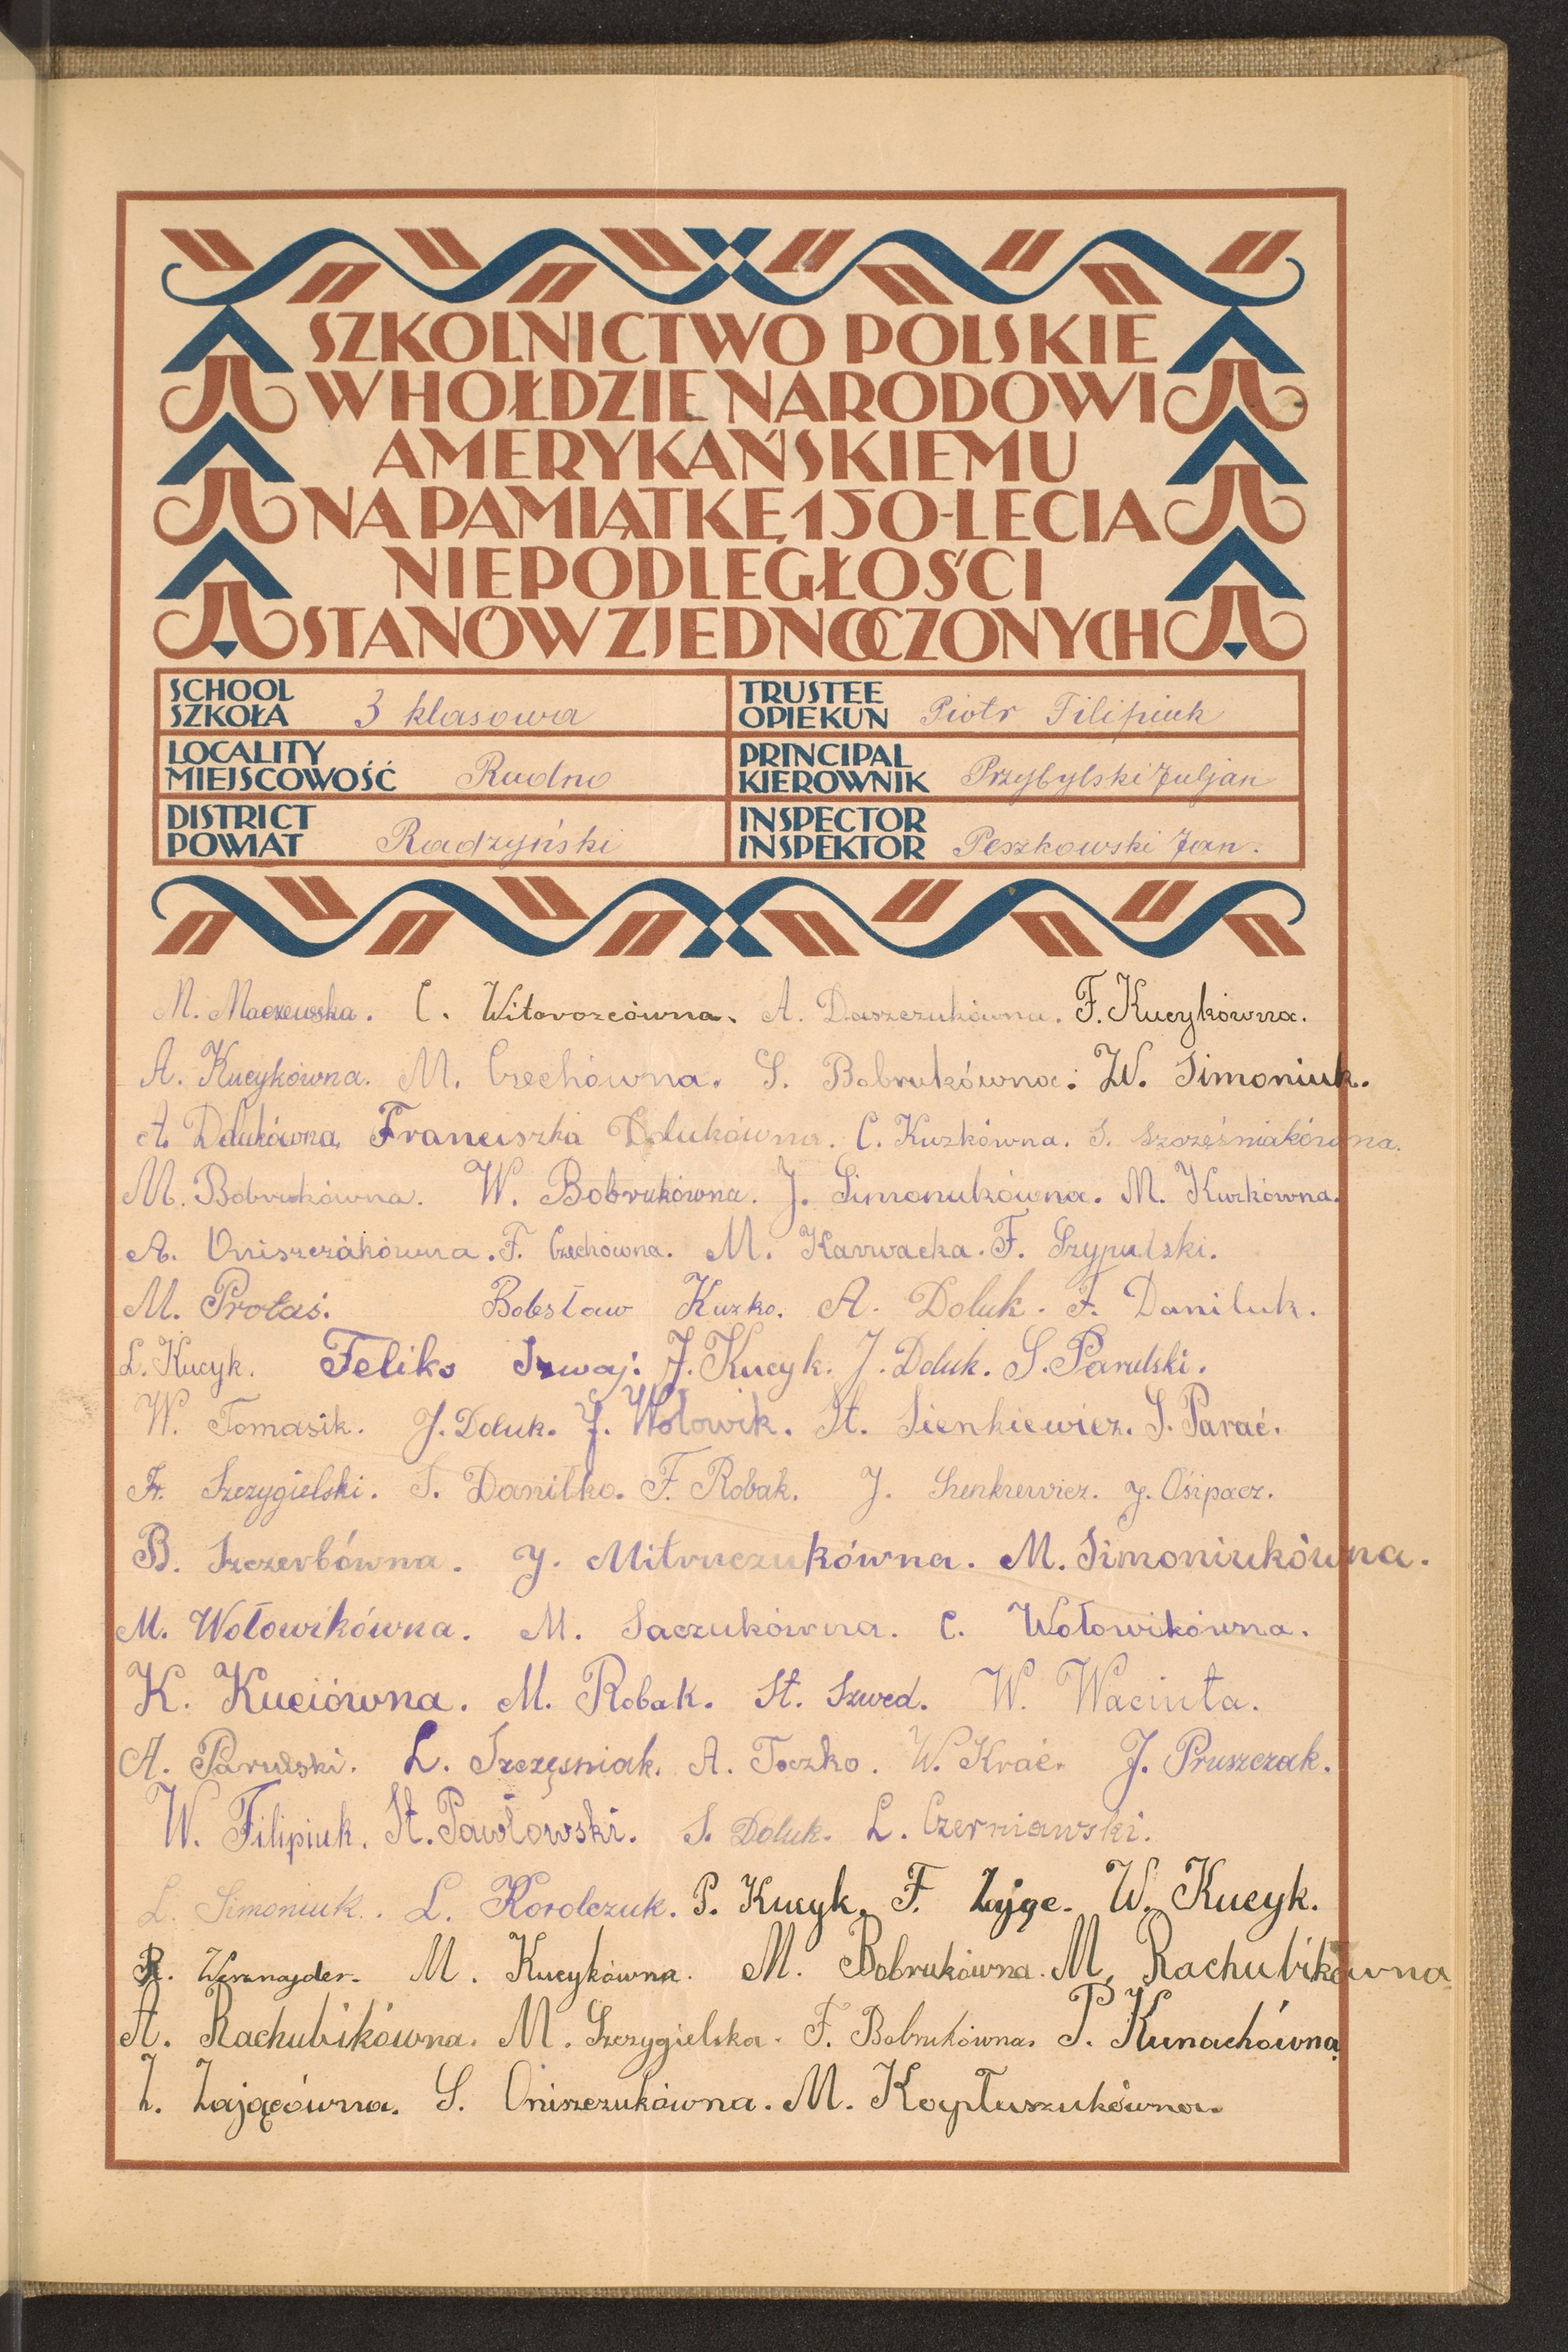 SZKOLNICTWO POLSKIE
W HOŁDZIE NARODOWI
AMERYKAŃSKIEMU
NA PAMIĄTKĘ 150-LECIA
NIEPODLEGŁOŚCI
STANÓW ZJEDNOCZONYCH
SCHOOL
SZKOŁA 3 klasowa
TRUSTEE
OPIEKUN Piotr Filipiuk
LOCALITY
MIEJSCOWOŚĆ Rudno
PRINCIPAL
KIEROWNIK Przybylski Juljan
DISTRICT
POWIAT Radzyński
INSPECTOR
INSPEKTOR Peszkowski Jan.
M. Maczewska. C. A. Daszczukówna. F. Kucykówna.
A. Kucykówna. M. Czechówna. S. Bobrukówna. W. Simoniuk.
A. Dolukówna. Franciszka Dolukówna. C. Kuzkówna. S. Szczęśniakówna.
M. Bobrukówna. W. Bobrukówna. J. Simonukówna. M. Kuzkówna.
A. Oniszczukówna. F. Czechówna. M. Karwacka. F. Szypulski.
M. Protas. Bolesław Kuzko. A. Doluk. F. Daniluk.
L. Kucyk. Feliks Szwaj. J. Kucyk. J. Doluk. S. Parulski.
W. Tomasik. J. Doluk. J. Wołowik. St. Sienkiewicz. S. Parać.
Fr. Szczygielski. S. Daniłko. F. Robak. J. Sienkiewicz. J. Osipacz.
B. Szczerbówna. J. Mitruczukówna. M. Simoniukówna.
M. Wołowikówna. M. Saczukówna. C. Wołowikówna.
K. Kuciówna. M. Robak. St. Szwed. W. Waciuta.
A. Parulski. L. Szczęsniak. A. Toczko. W. Krać. J. Pruszczak.
W. Filipiuk. St. Pawłowski. S. Doluk. L. Czerniawski.
L. Simoniuk. L. Korolczuk. P. Kucyk. F. Zając. W. Kucyk.
R. Wernajder. M. Kucykówna. M. Bobrukówna. M. Rachubikówna
A. Rachubikówna. M. Szczygielska. F. Bobrukówna. P. Kunachówna
Z. Zającówna. S. Oniszczukówna. M. Kapłuszukówna.